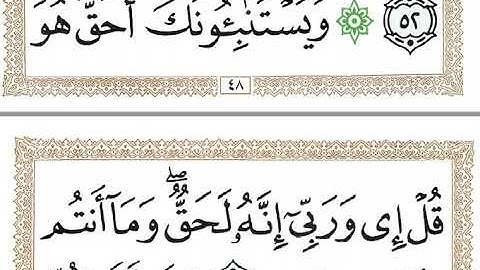 ٥٢ وَيَسْتَنۢبِـُٔونَكَ أَحَقٌّ هُوَ
٤٨
قُلْ إِى وَرَبِّىٓ إِنَّهُۥ لَحَقٌّۭ ۖ وَمَآ أَنتُم